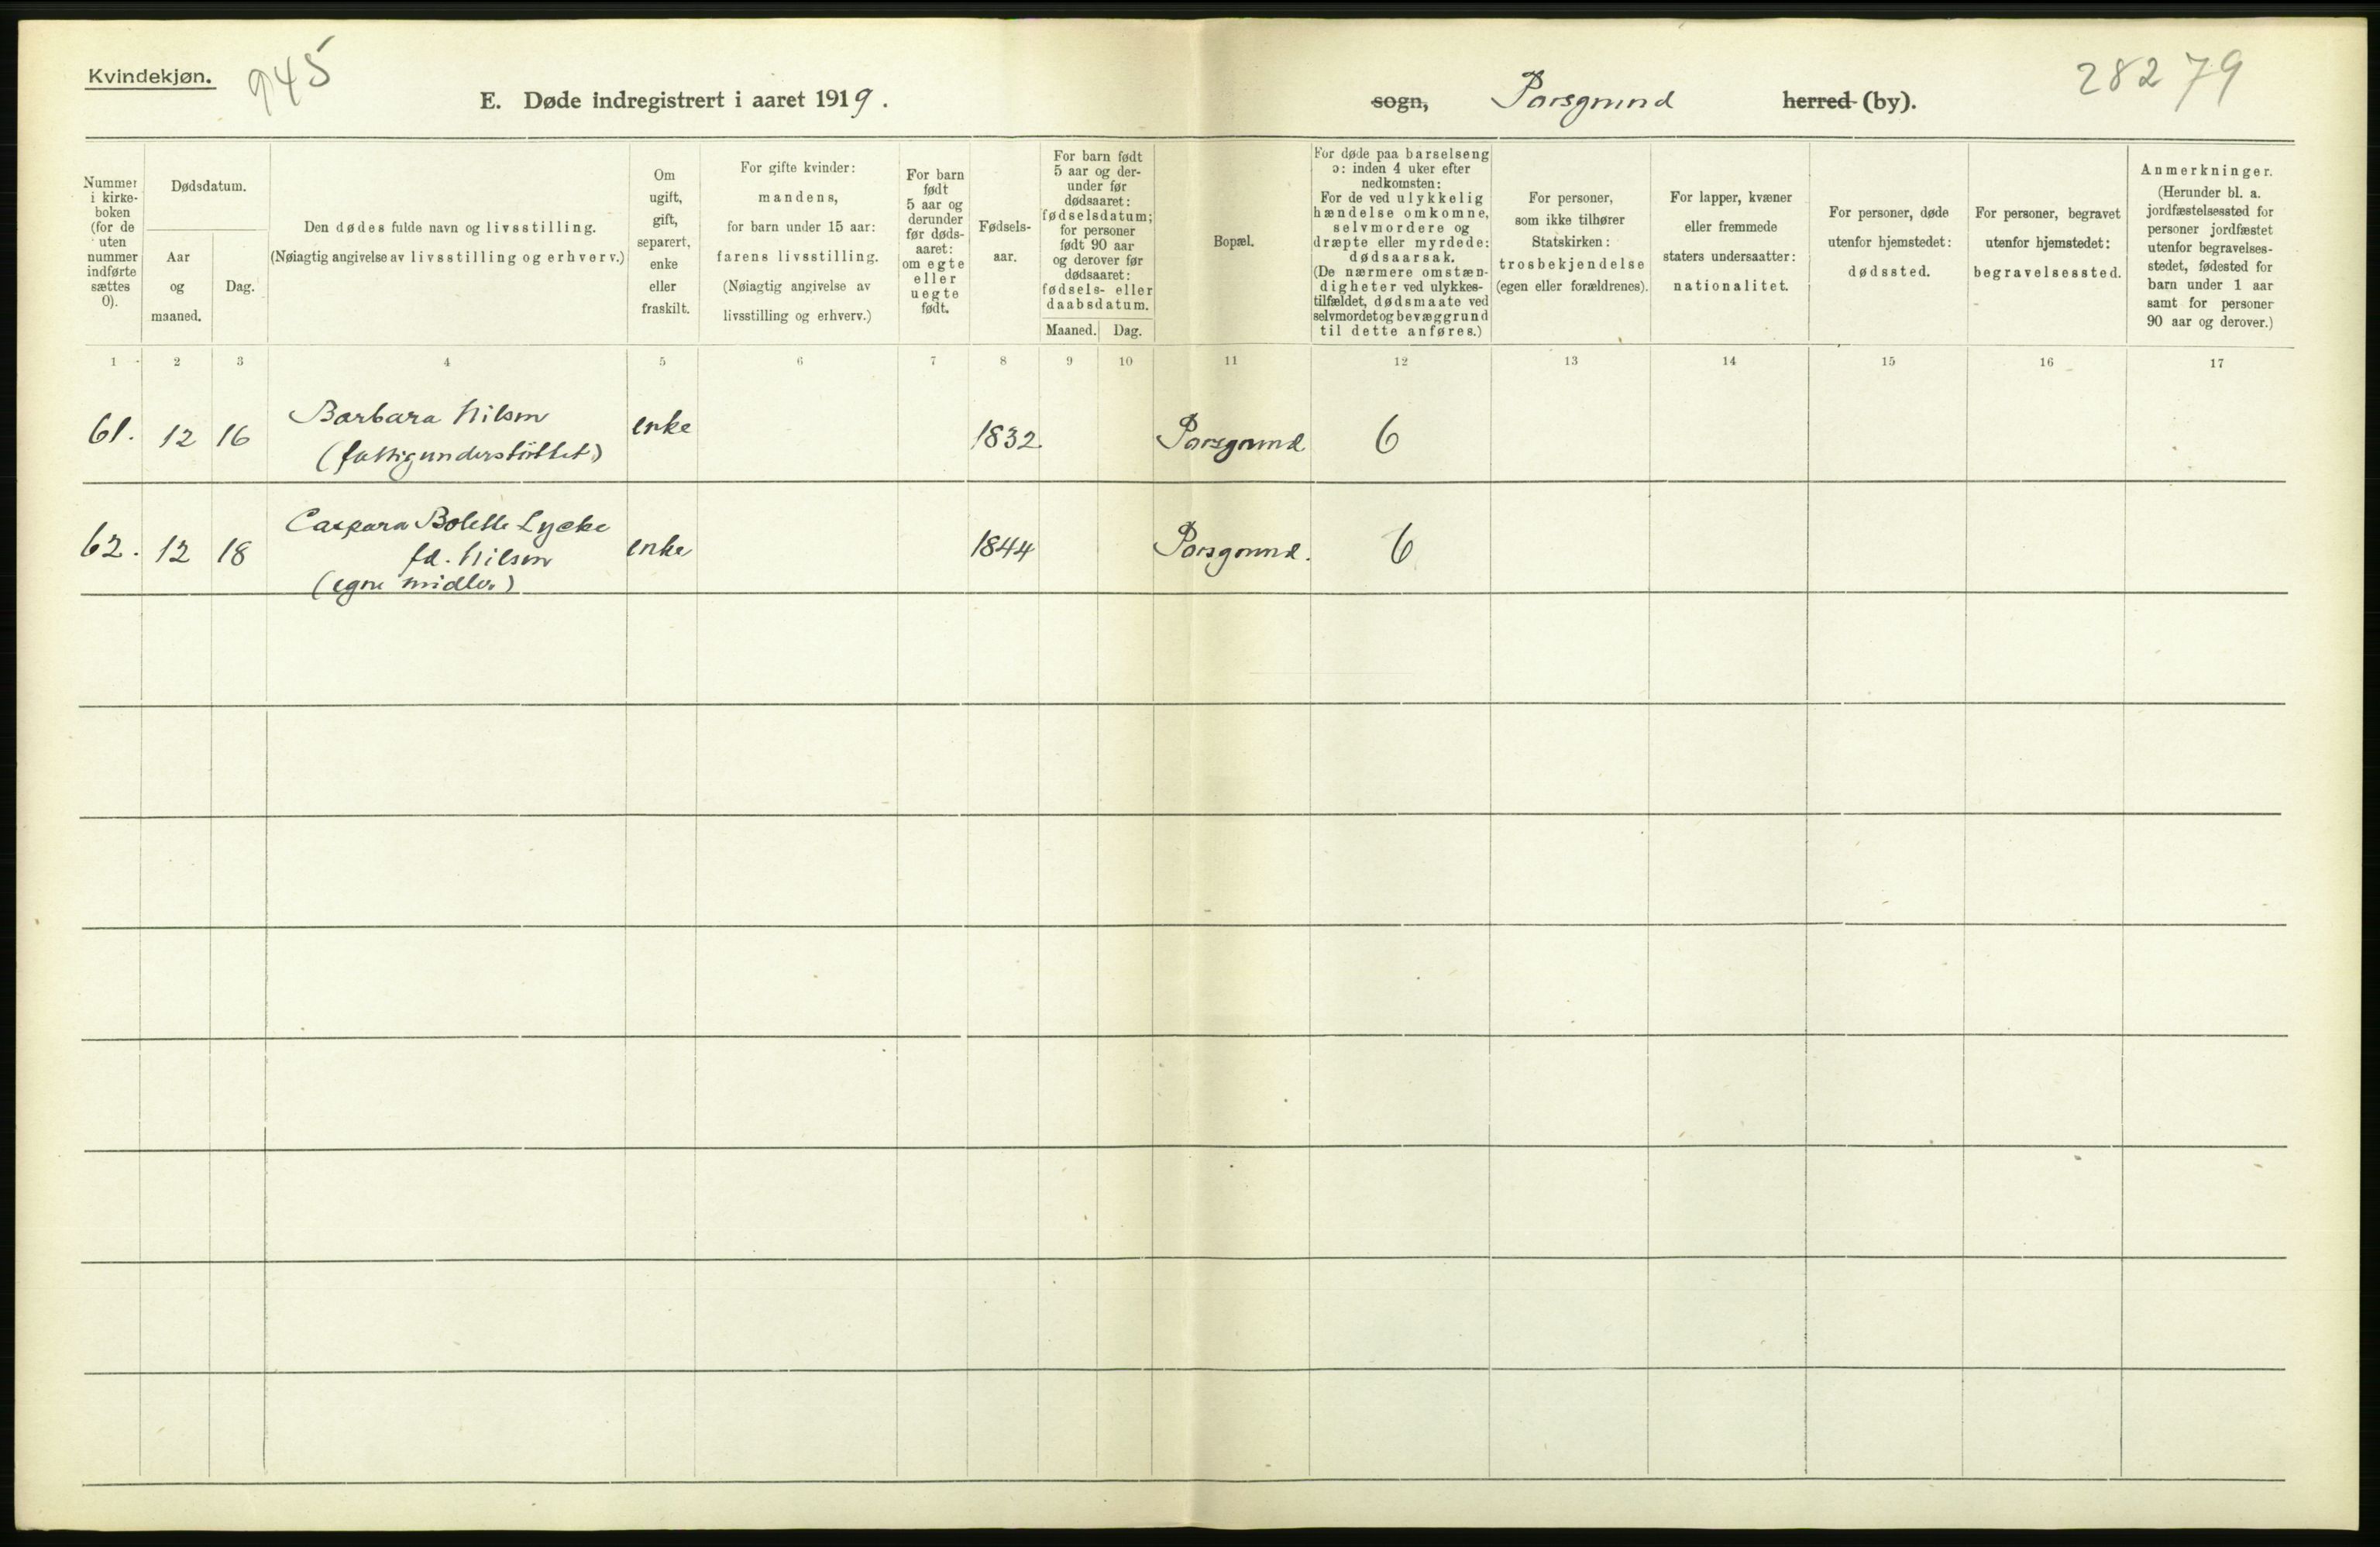 Kvindekjøn.
945
E. Døde indregistrert i aaret 1919.
sogn, Porsgrund herred (by).
28279
Nummer i kirke-boken (for de uten nummer indførte sættes 0).
Dødsdatum.
Aar og maaned.
Dag.
Den dødes fulde navn og livsstilling.
(Nøiagtig angivelse av livsstilling og erhverv.)
Om ugift, gift, separert, enke eller fraskilt.
For gifte kvinder:
mandens,
for barn under 15 aar:
farens livsstilling.
(Nøiagtig angivelse av
livsstilling og erhverv.)
For barn født 5 aar og derunder før døds-aaret: om egte eller uegte født.
Fødsels-
aar.
For barn født
5 aar og der-
under før
dødsaaret:
fødselsdatum;
for personer
født 90 aar
og derover før
dødsaaret:
fødsels- eller
daabsdatum.
Maaned. Dag.
Bopæl.
For døde paa barselseng
ɔ: inden 4 uker efter
nedkomsten:
For de ved ulykkelig
hændelse omkomne,
selvmordere og
dræpte eller myrdede:
dødsaarsak.
(De nærmere omstæn-
digheter ved ulykkes-
tilfældet, dødsmaate ved
selvmordet og bevæggrund
til dette anføres.)
For personer,
som ikke tilhører
Statskirken:
trosbekjendelse
(egen eller forældrenes).
For lapper, kvæner
eller fremmede
staters undersaatter:
nationalitet.
For personer, døde
utenfor hjemstedet:
dødssted.
For personer, begravet
utenfor hjemstedet:
begravelsessted.
Anmerkninger.
(Herunder bl. a.
jordfæstelsessted for
personer jordfæstet
utenfor begravelses-
stedet, fødested for
barn under 1 aar
samt for personer
90 aar og derover.)
1 2 3 4 5 6 7 8 9 10 11 12 13 14 15 16 17
61. 12 16 Barbara Nilsen enke 1832. Porsgrund 6
(fattigunderstöttet)
62. 12 18 Caspara Bolette Lycke enke 1844 Porsgrund. 6
fd. Nilsen
(egne midler)